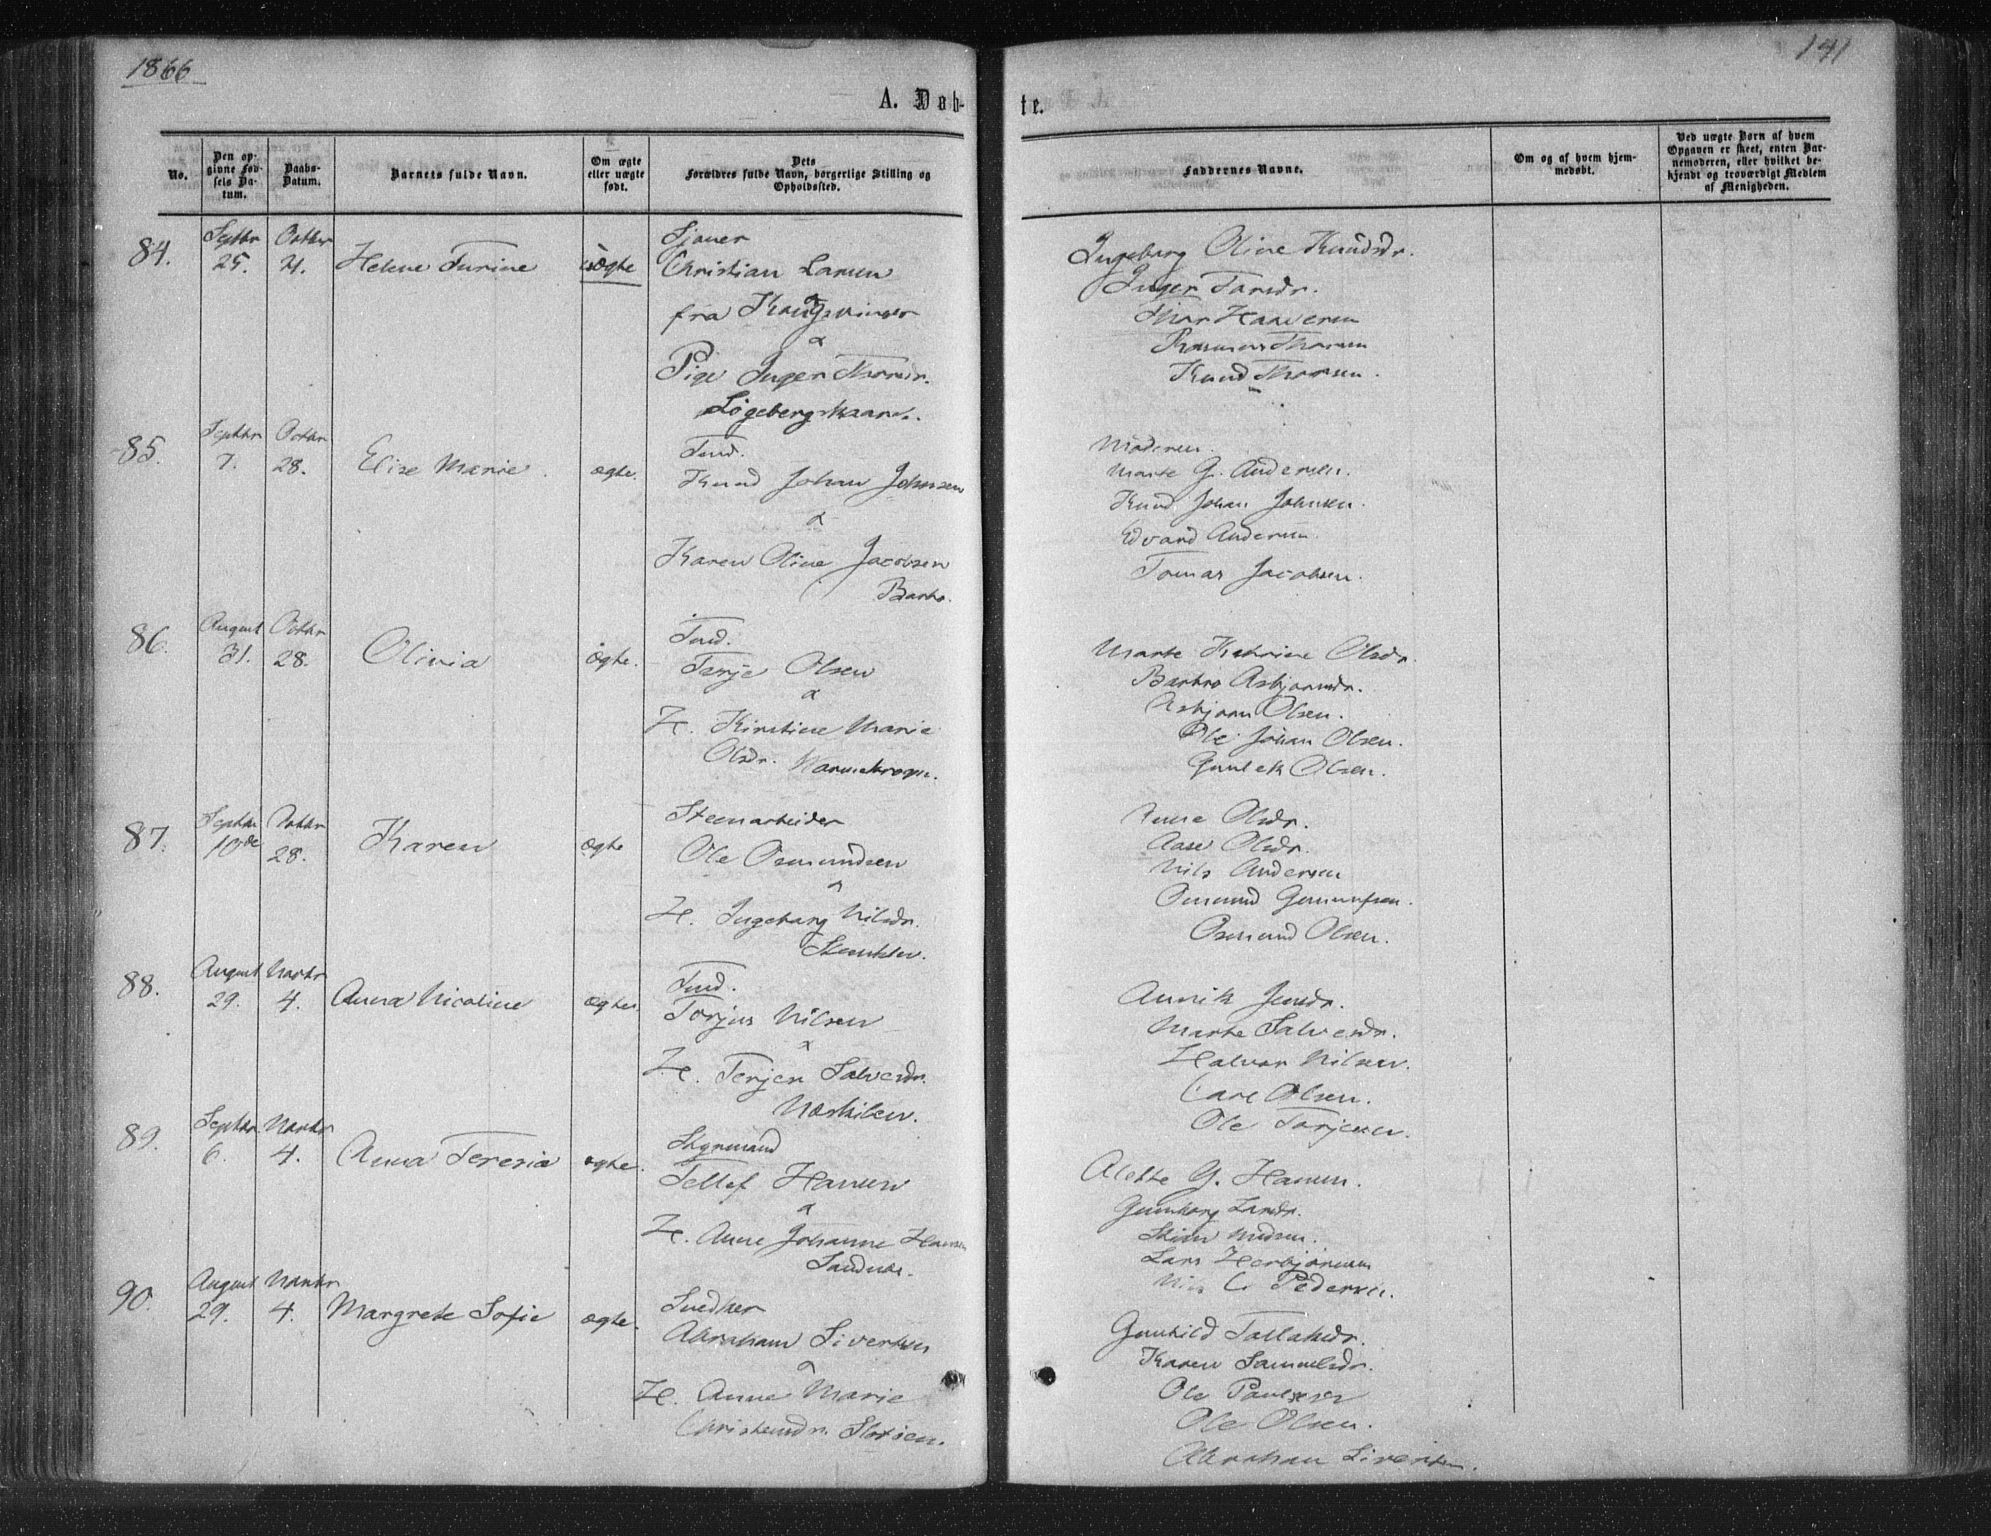 1866
141
A. Døb-
te.
No.
Den op-
givne Fød-
sels Da-
tum.
Daabs-
Datum.
Barnets fulde Navn.
Om ægte
eller uægte
født.
Dets
Forældres fulde Navn, borgerlige Stilling og
Opholdssted.
Faddernes Navne.
Om og af hvem hjem-
medøbt.
Ved uægte Børn af hvem
Opgaven er skeet, enten Bar-
nemoderen, eller hvilket be-
kjendt og troværdigt Medlem
af Menigheden.
84.
Septbr
25.
Octbr
21.
Helene Turine
uægte
Sjouer
Christian Larsen
fra Kongsvinger
&
Pige Inger Thorsdr.
Ingeborg Oline Knudsdr.
Inger Tarsdr.
Thor Haaversen
Rasmus Thorsen
Knud Thorsen.
85.
Septbr
7.
Octbr
28.
Elise Marie.
ægte.
Tnd.
Knud Johan Johnsen
&
Karen Oline Jacobsen
Barbo.
Moderen.
Marte G. Andersen.
Knud Johan Johnsen.
Edvard Andersen.
Tomas Jacobsen.
86.
August
31.
Octbr
28.
Olivia
ægte.
Tnd.
Terje Olsen
&
H. Kirstine Marie
Olsdr.
Marte Katrine Olsdr.
Barbro Asbjørnsdr.
Asbjørn Olsen.
Ole Johan Olsen.
Gunlek Olsen.
87.
Septbr
10de
Octbr
28.
Karen
ægte
Steenarbeider
Ole Osmundsen
&
H. Ingeborg Nilsdr.
Anne Olsdr.
Aase Olsdr.
Nils Andersen
Osmund
Osmund Olsen.
88.
August
29.
Novbr
4.
Anna Nicoline
ægte
Tnd.
Torjus Nilsen
&
H. Terjer Salvesdr.
Næskilen.
Annik Jensdr.
Marte Salvesdr.
Halvor Nilsen.
Carl Olsen.
Ole Torjesen.
89.
Septbr.
6.
Novbr
4.
Anna Teresia
ægte.
Styrmand
Tellef Hansen
&
H. Anne Johanne Hansen
Sandnæs.
Alette G. Hansen.
Gunborg Larsdr.
Lars Herbjørnsen
Nils C. Pedersen.
90.
August
29.
Novbr
4.
Margrete Sofie
ægte.
Snedker
Abraham Sivertsen
&
H. Anne Marie
Christensdr.
Gunhild Tallaksdr.
Karen Samuelsdr.
Ole Paulsen
Ole Olsen.
Abraham Sivertsen.